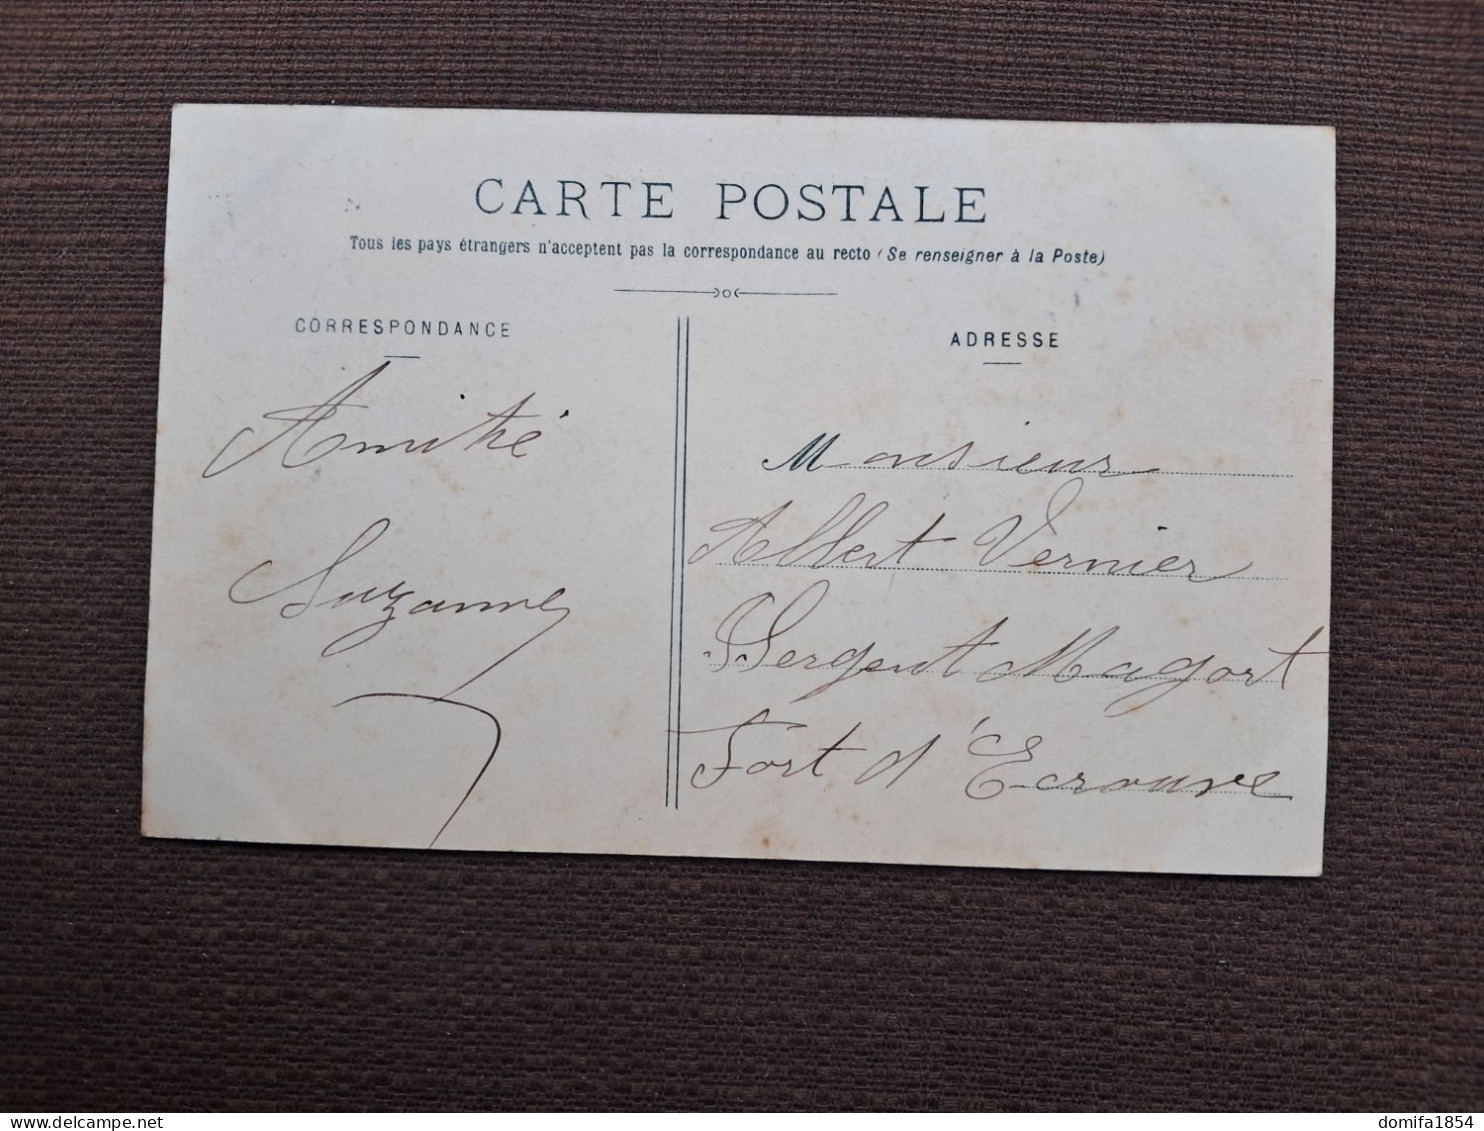 CARTE POSTALE
Tous les pays étrangers n'acceptent pas la correspondance au recto (Se renseigner à la Poste)
CORRESPONDANCE
Amitié
Suzanne
ADRESSE
Monsieur
Albert Vernier
Sergent Magort
Fort d'Ecrouve
domifa1854